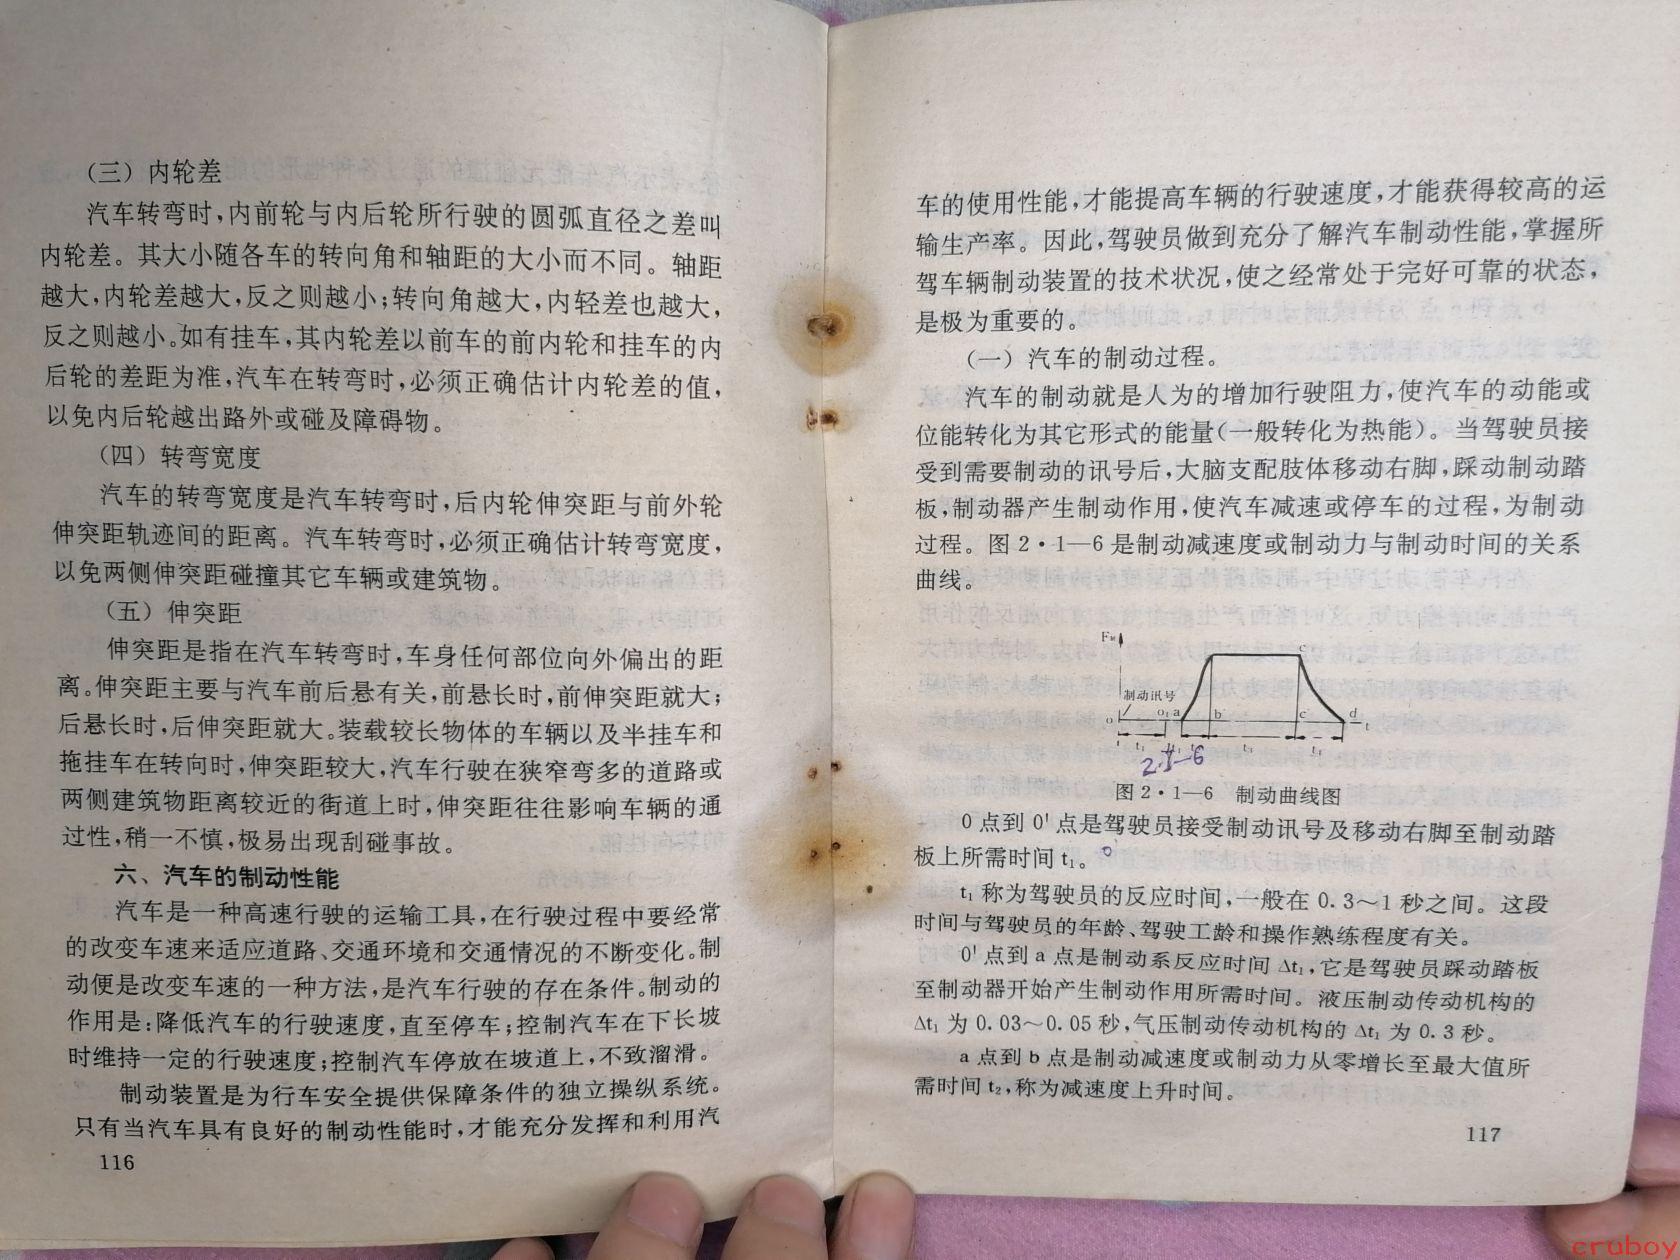 （三）内轮差
汽车转弯时，内前轮与内后轮所行驶的圆弧直径之差叫
内轮差。其大小随各车的转向角和轴距的大小而不同。轴距
越大，内轮差越大，反之则越小；转向角越大，内轻差也越大，
反之则越小。如有挂车，其内轮差以前车的前内轮和挂车的内
后轮的差距为准，汽车在转弯时，必须正确估计内轮差的值，
以免内后轮越出路外或碰及障碍物。
（四）转弯宽度
汽车的转弯宽度是汽车转弯时，后内轮伸突距与前外轮
伸突距轨迹间的距离。汽车转弯时，必须正确估计转弯宽度，
以免两侧伸突距碰撞其它车辆或建筑物。
（五）伸突距
伸突距是指在汽车转弯时，车身任何部位向外偏出的距
离。伸突距主要与汽车前后悬有关，前悬长时，前伸突距就大；
后悬长时，后伸突距就大。装载较长物体的车辆以及半挂车和
拖挂车在转向时，伸突距较大，汽车行驶在狭窄弯多的道路或
两侧建筑物距离较近的街道上时，伸突距往往影响车辆的通
过性，稍一不慎，极易出现刮碰事故。
六、汽车的制动性能
汽车是一种高速行驶的运输工具，在行驶过程中要经常
的改变车速来适应道路、交通环境和交通情况的不断变化。制
动便是改变车速的一种方法，是汽车行驶的存在条件。制动的
作用是：降低汽车的行驶速度，直至停车；控制汽车在下长坡
时维持一定的行驶速度；控制汽车停放在坡道上，不致溜滑。
制动装置是为行车安全提供保障条件的独立操纵系统。
只有当汽车具有良好的制动性能时，才能充分发挥和利用汽
116
车的使用性能，才能提高车辆的行驶速度，才能获得较高的运
输生产率。因此，驾驶员做到充分了解汽车制动性能，掌握所
驾车辆制动装置的技术状况，使之经常处于完好可靠的状态，
是极为重要的。
（一）汽车的制动过程。
汽车的制动就是人为的增加行驶阻力，使汽车的动能或
位能转化为其它形式的能量（一般转化为热能）。当驾驶员接
受到需要制动的讯号后，大脑支配肢体移动右脚，踩动制动踏
板，制动器产生制动作用，使汽车减速或停车的过程，为制动
过程。图2·1—6是制动减速度或制动力与制动时间的关系
曲线。
制动讯号
o o₁ a b c d t
图2·1—6 制动曲线图
0点到0'点是驾驶员接受制动讯号及移动右脚至制动踏
板上所需时间t₁。
t₁称为驾驶员的反应时间，一般在0.3～1秒之间。这段
时间与驾驶员的年龄、驾驶工龄和操作熟练程度有关。
0'点到a点是制动系反应时间Δt₁，它是驾驶员踩动踏板
至制动器开始产生制动作用所需时间。液压制动传动机构的
Δt₁为0.03～0.05秒，气压制动传动机构的Δt₁为0.3秒。
a点到b点是制动减速度或制动力从零增长至最大值所
需时间t₂，称为减速度上升时间。
117
cruboy